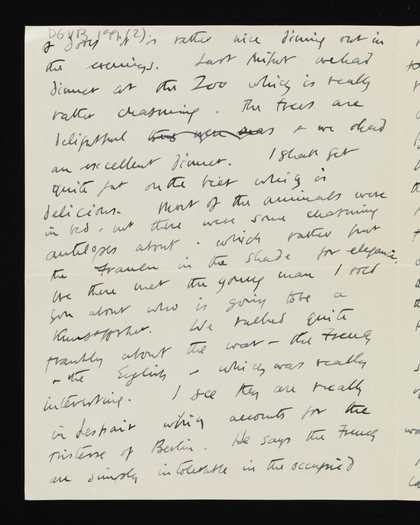 of food it is rather nice dining out in
the evenings. Last night we had
dinner at the Zoo which is really
rather charming. The trees are
delightful + we had
an excellent dinner. I shall get
quite fat on the beer which is
delicious. Most of the animals were
in bed, but there were some charming
antelopes about, which rather put
the Frauen in the shade for elegance.
We there met the young man I told
you about who is going to be a
Kunstforscher. We talked quite
frankly about the war - the French
+ the English - which was really
interesting. I see they are really
in despair which accounts for the
tristesse of Berlin. He says the French
are simply intolerable in the occupied